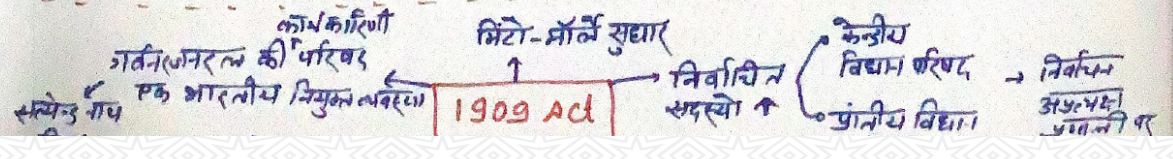 कार्यकारिणी
गर्वनरजनरल की परिषद
एक भारतीय नियुक्त व्यवस्था
सत्येन्द्र
मिंटो-मॉर्ले सुधार
1909 Act
निर्वाचित
सदस्यो
केन्द्रीय
विधान परिषद
प्रांतीय विधान
निर्वाचन
अप्रत्यक्ष
प्रणाली पर